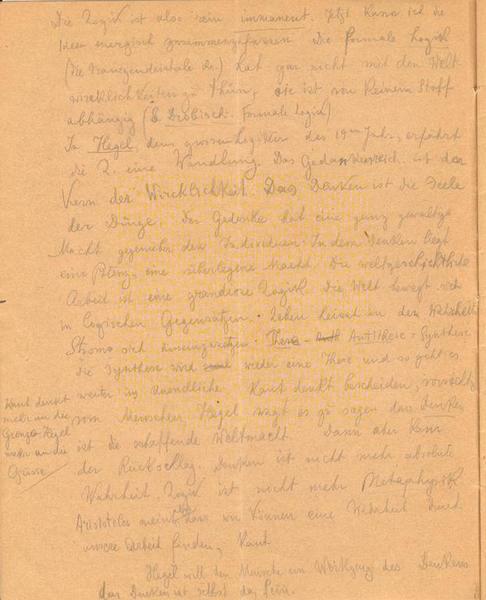 Die Logik ist also rein immanent. Jetzt kann ich die
Ideen energisch zusammenzufassen. Die formale Logik
(die transzendentale do.) hat gar nicht mit den Welt
wirklichkeiten zu thun, sie ist von keinem Stoff
abhängig (S. Drobisch. Formale Logik)
In Hegel, dem grossen Logiker des 19ten Jahr, erfährt
die L. eine Wandlung. Das Gedankenreich ist der
Kern der Wirklichkeit. Das Denken ist die Seele
der Dinge. Der Gedanke hat eine ganz gewaltige
Macht gegenüber den Individuen. In dem Denken liegt
eine Potenz, eine überlegene Macht. Die weltgeschichtliche
Arbeit ist eine grandiose Logik. Die Welt bewegt sich
in logischen Gegensätzen. Leben heisst in den Wahrheit
Strome sich hineinversetzen. These - Antithese - Synthese
die Synthese wird wieder eine These und so geht es
weiter ins unendliche. Kant denkt bescheiden,
vom Menschen Hegel wagt es zu sagen das Denken
ist die schaffende Weltmacht. Dann aber kam
der Rückschlag. Denken ist nicht mehr absolute
Wahrheit. Logik ist nicht mehr Metaphysik
Aristoteles meint, wir können eine Wahrheit durch
unsere Arbeit finden, Kant
Hegel will den Mensch ein Werkzeug des Denkens
das Denken ist selbst das Sein.
Kant denkt
mehr an die
Grenze Hegel
mehr an die
Grösse